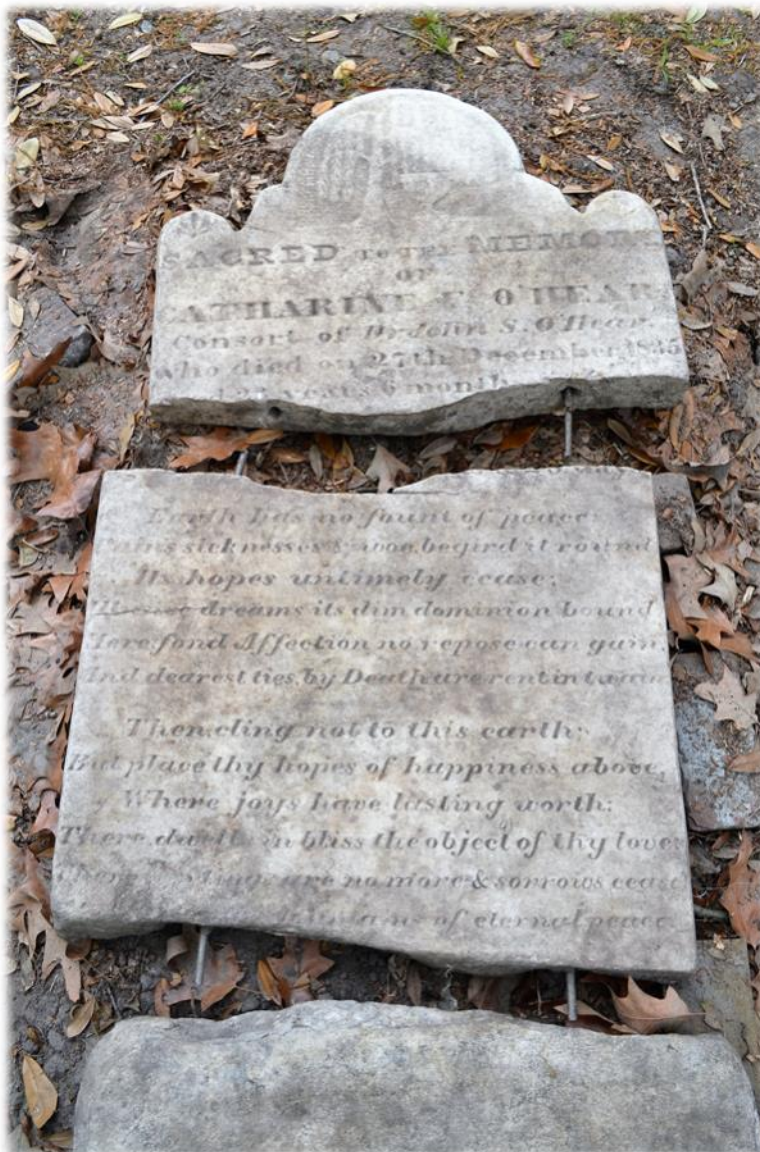 SACRED TO THE MEMORY
OF
CATHARINE O'HEAR
Consort of Dr John S. O'Hear,
who died on 27th December
years 6 month
Earth has no fount of peace
sicknesses & woe, begird it round
Its hopes untimely cease;
dreams its dim dominion bound
Here fond Affection no repose can gain
And dearest ties, by Death are rent in twain
Then, cling not to this earth
But place thy hopes of happiness above,
Where joys have lasting worth:
There, dwells in bliss the object of thy love
are no more & sorrows cease
of eternal peace